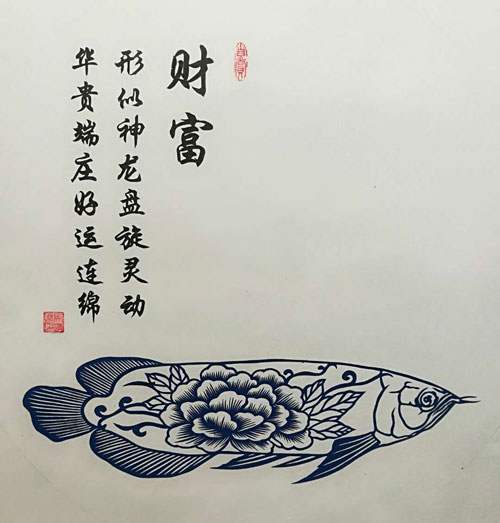 财富
形似神龙盘旋灵动
华贵端庄好运连绵